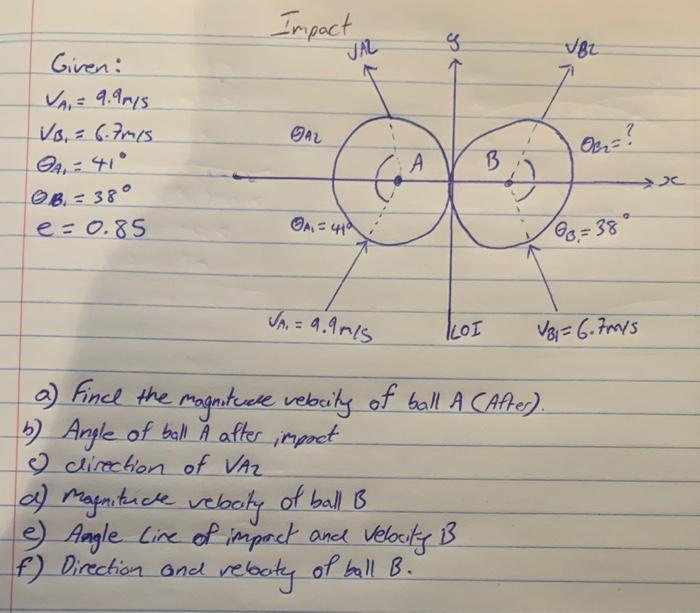 Impact
Given:
VA1 = 9.9m/s
VB1 = 6.7m/s
θA1 = 41°
θB1 = 38°
e = 0.85
VA2
y
VB2
θA2
A
B
θB2 = ?
x
θA1 = 41°
θB1 = 38°
VA1 = 9.9m/s
LOI
VB1 = 6.7m/s
a) Find the magnitude velocity of ball A (After).
b) Angle of ball A after impact
c) direction of VA2
d) Magnitude velocity of ball B
e) Angle Line of impact and velocity B
f) Direction and velocity of ball B.